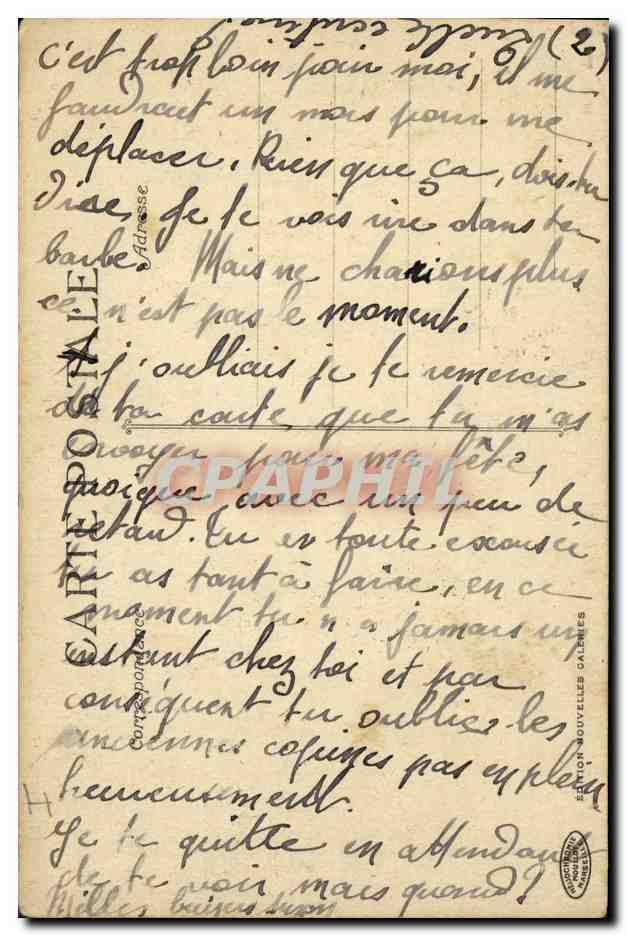 (2)
c'est trop loin pour moi, il me
faudrait un mois pour me
déplacer, Rien que ça, dois-tu
dire, Je te vois rire dans ta
barbe. Mais ne charions plus
ce n'est pas le moment.
j'oubliais je te remercie
de ta carte que tu m'as
envoyer pour ma fête,
quoique avec un peu de
retard. Tu es toute excusée
tu as tant à faire, en ce
moment tu n'a jamais un
instant chez toi et par
conséquent tu oublies les
anciennes copines pas en plein
heureusement.
Je te quitte en attendant
de te voir, mais quand?
Milles baisers
CARTE POSTALE
Correspondance
Adresse
EDITION NOUVELLES GALERIES
HELIOCHROMIE
MARSEILLE
CPAPHIL